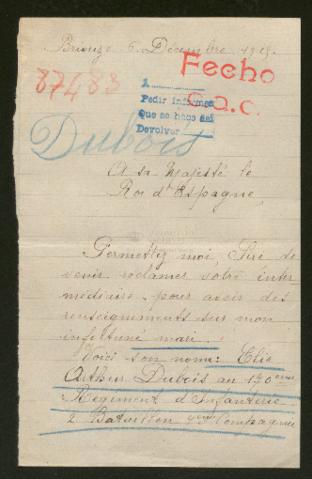 6 Décembre 191
87483
Fecho
1
Pedir informes
Que se hace así
Devolver
c.a.c.
Dubois
A sa Majesté le
Roi d'Espagne
Permettez moi, Sire de
venir réclamer votre inter
médiaire pour avoir des
renseignements sur mon
infortuné mari.
Voici son nom: Elie
Arthur Dubois au 170eme
Regiment d'Infanterie
2 Bataillon Compagnie